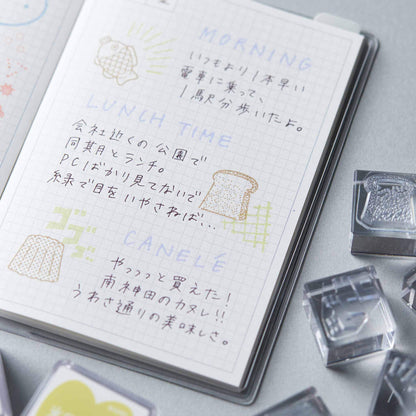 MORNING
いつもより1本早い
電車に乗って、
1駅分歩いたよ。
LUNCH TIME
会社近くの公園で
同期とランチ。
PCばかり見てないで
緑で目をいやさねば…
CANELÉ
やっっっと買えた！
南神田のカヌレ!!
うわさ通りの美味しさ。